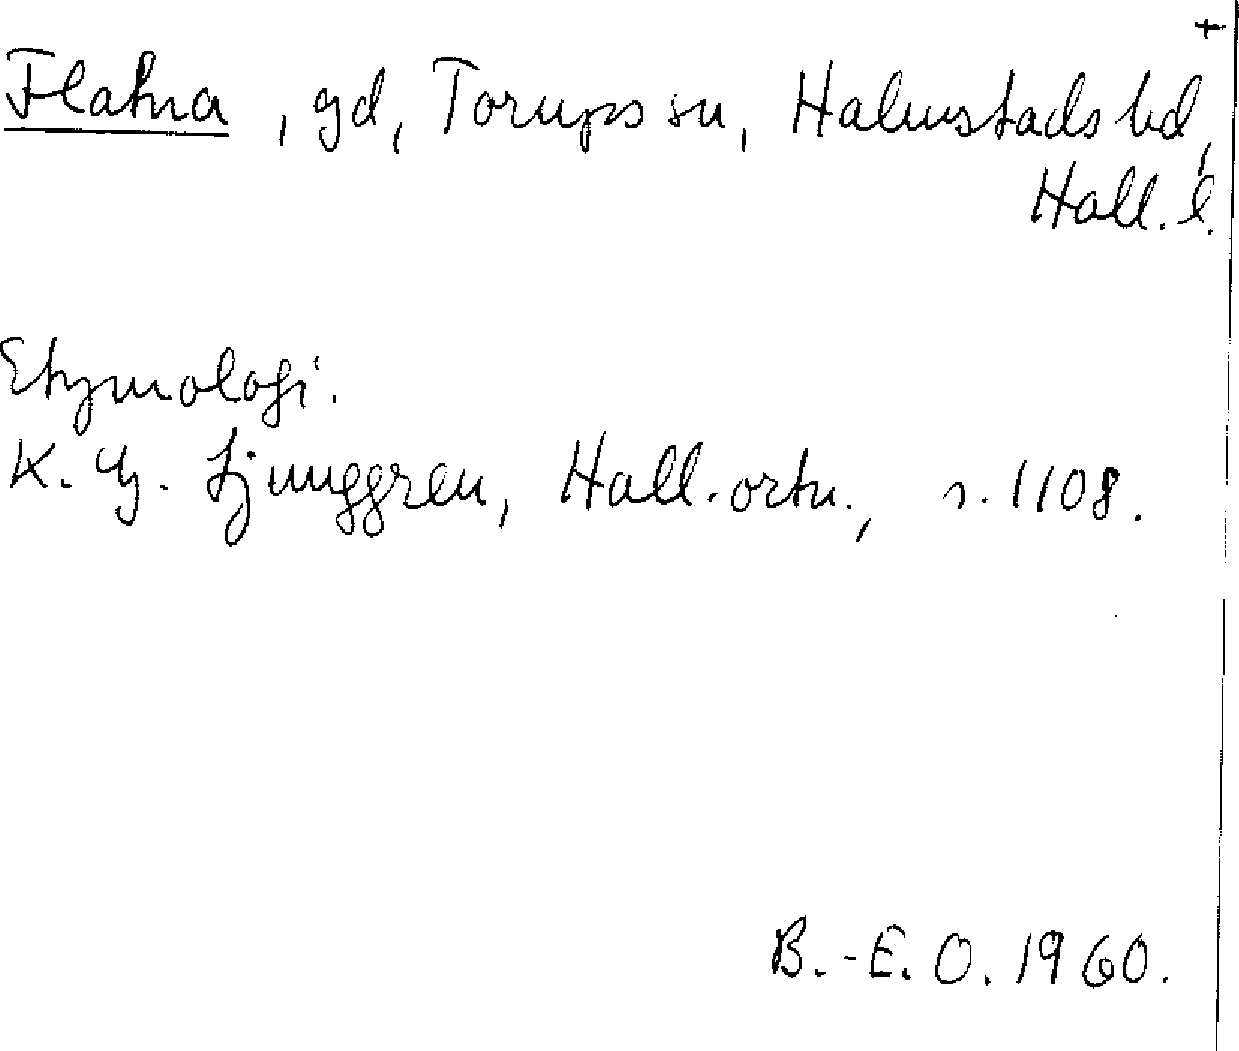 +
Flatna, gd, Torups sn, Halmstads hd,
Hall. l.
Etymologi.
K. G. Ljunggren, Hall. ortn., s. 1108.
B.-E. O. 1960.